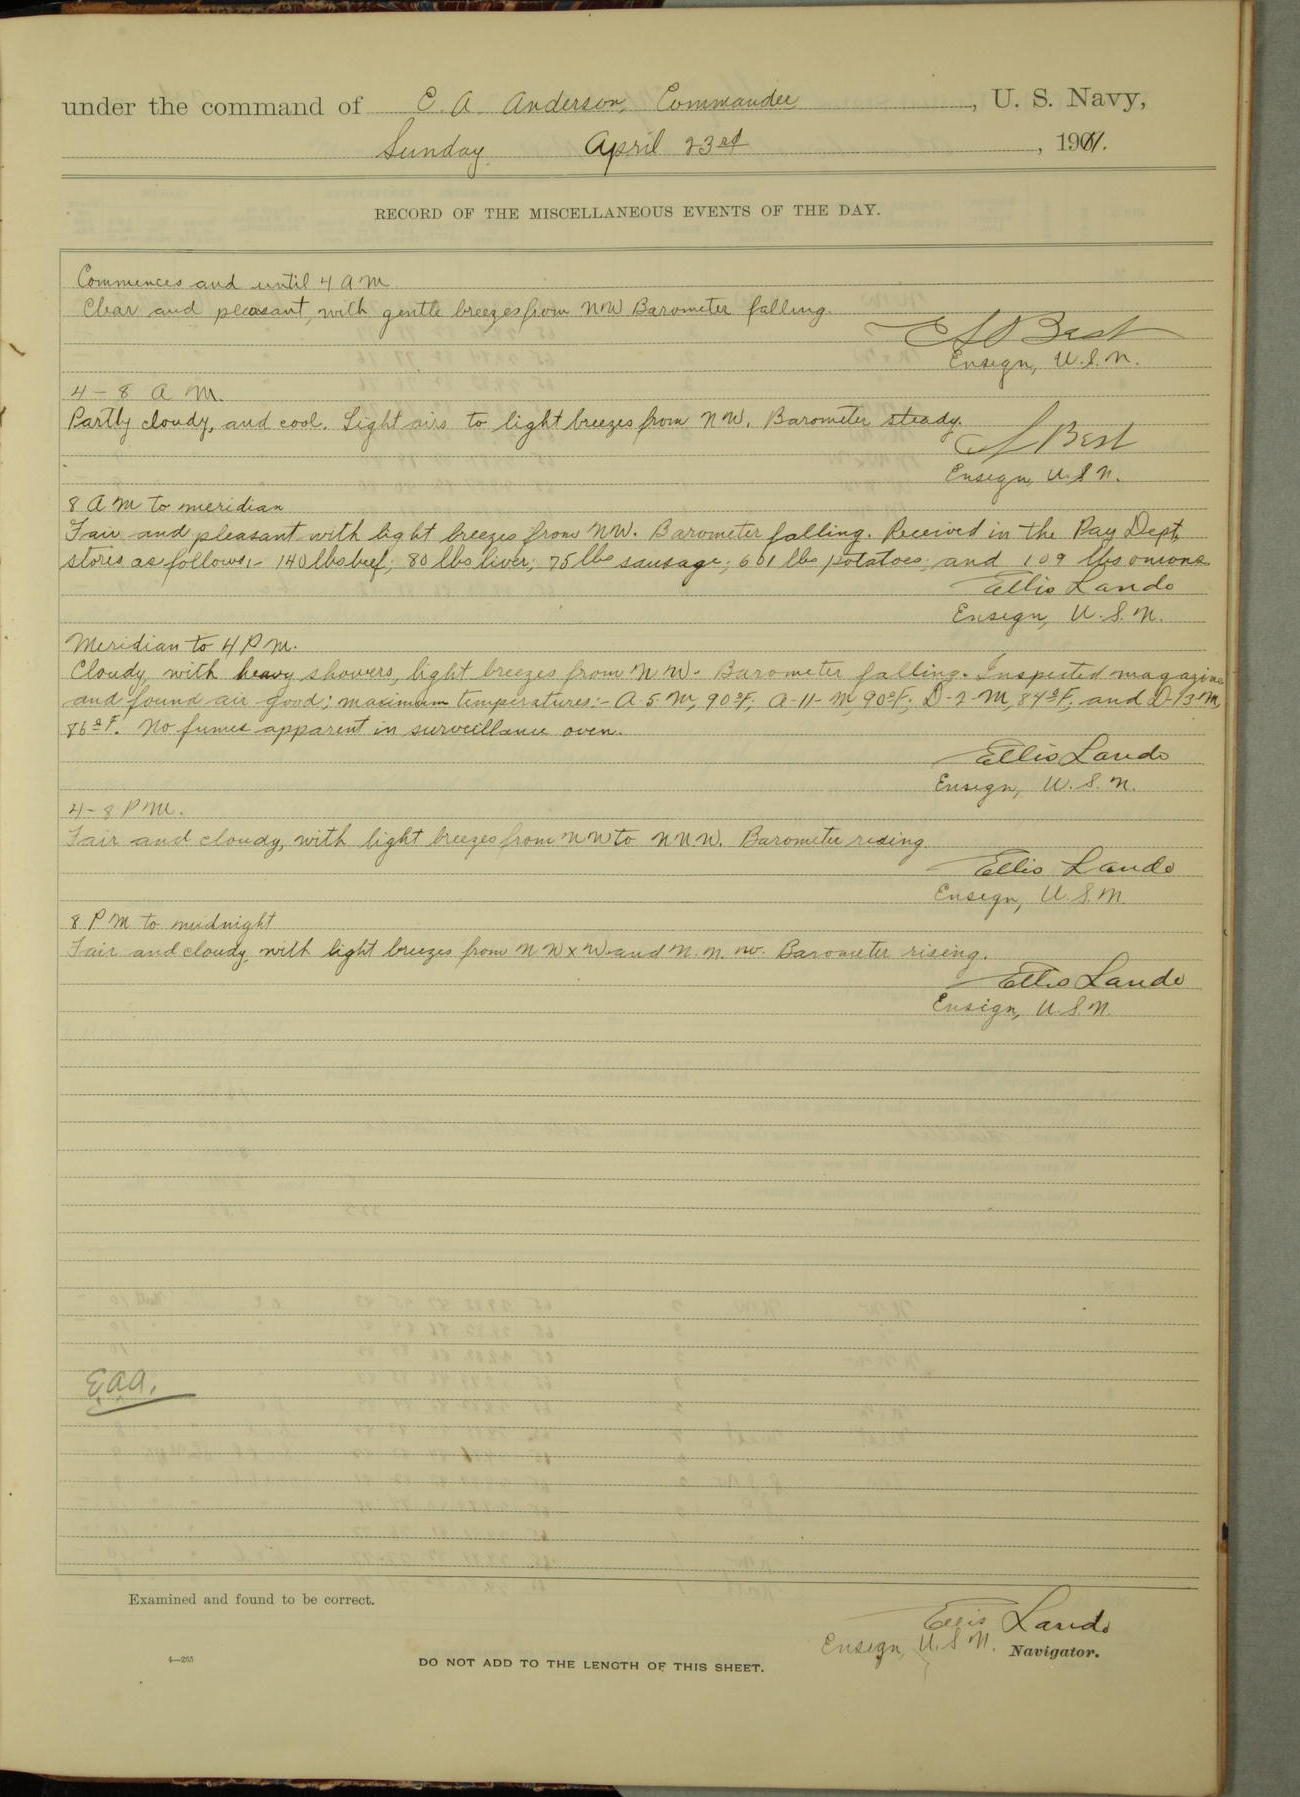 under the command of E. A. Anderson, Commander, U. S. Navy,
Sunday April 23rd, 1911.
RECORD OF THE MISCELLANEOUS EVENTS OF THE DAY.
Commences and until 4 A M
Clear and pleasant, with gentle breezes from NW Barometer falling.
Best
Ensign, U.S.N.
4 – 8 A M.
Partly cloudy, and cool. Light airs to light breezes from NW. Barometer steady.
Best
Ensign, U.S.N.
8 A M to meridian
Fair and pleasant with light breezes from NW. Barometer falling. Received in the Pay Dept,
stores as follows:- 140 lbs beef; 80 lbs liver; 75 lbs sausage; 601 lbs potatoes; and 109 lbs onions.
Ellis Lando
Ensign, U.S.N.
Meridian to 4 P M.
Cloudy, with heavy showers, light breezes from NW. Barometer falling. Inspected magazine
and found air good; maximum temperatures:- A-5-M, 90°F; A-11-M, 90°F; D-2-M, 84°F; and D-13-M,
86°F. No fumes apparent in surveillance oven.
Ellis Lando
Ensign, U.S.N.
4 – 8 P M.
Fair and cloudy, with light breezes from NW to NNW. Barometer rising
Ellis Lando
Ensign, U.S.N.
8 P M to midnight
Fair and cloudy, with light breezes from NWxW and N.N.W. Barometer rising.
Ellis Lando
Ensign, U.S.N.
E.A.A.
Examined and found to be correct.
Ellis Lando
Ensign, U.S.N. Navigator.
4—265
DO NOT ADD TO THE LENGTH OF THIS SHEET.